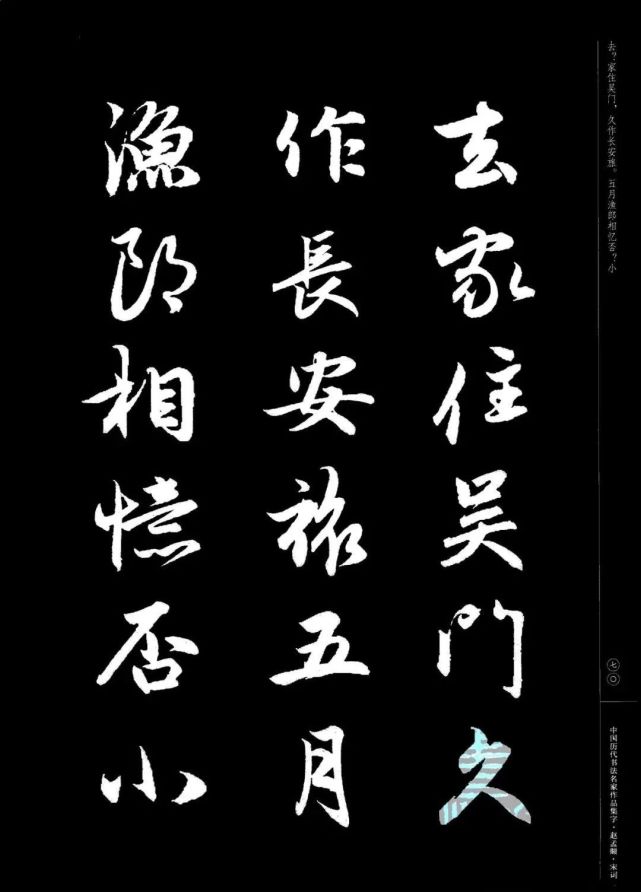 去家住吴門久
作長安旅五月
漁郎相憶否小
去？家住吴门，久作长安旅。五月渔郎相忆否？小
七〇
中国历代书法名家作品集字·赵孟頫·宋词